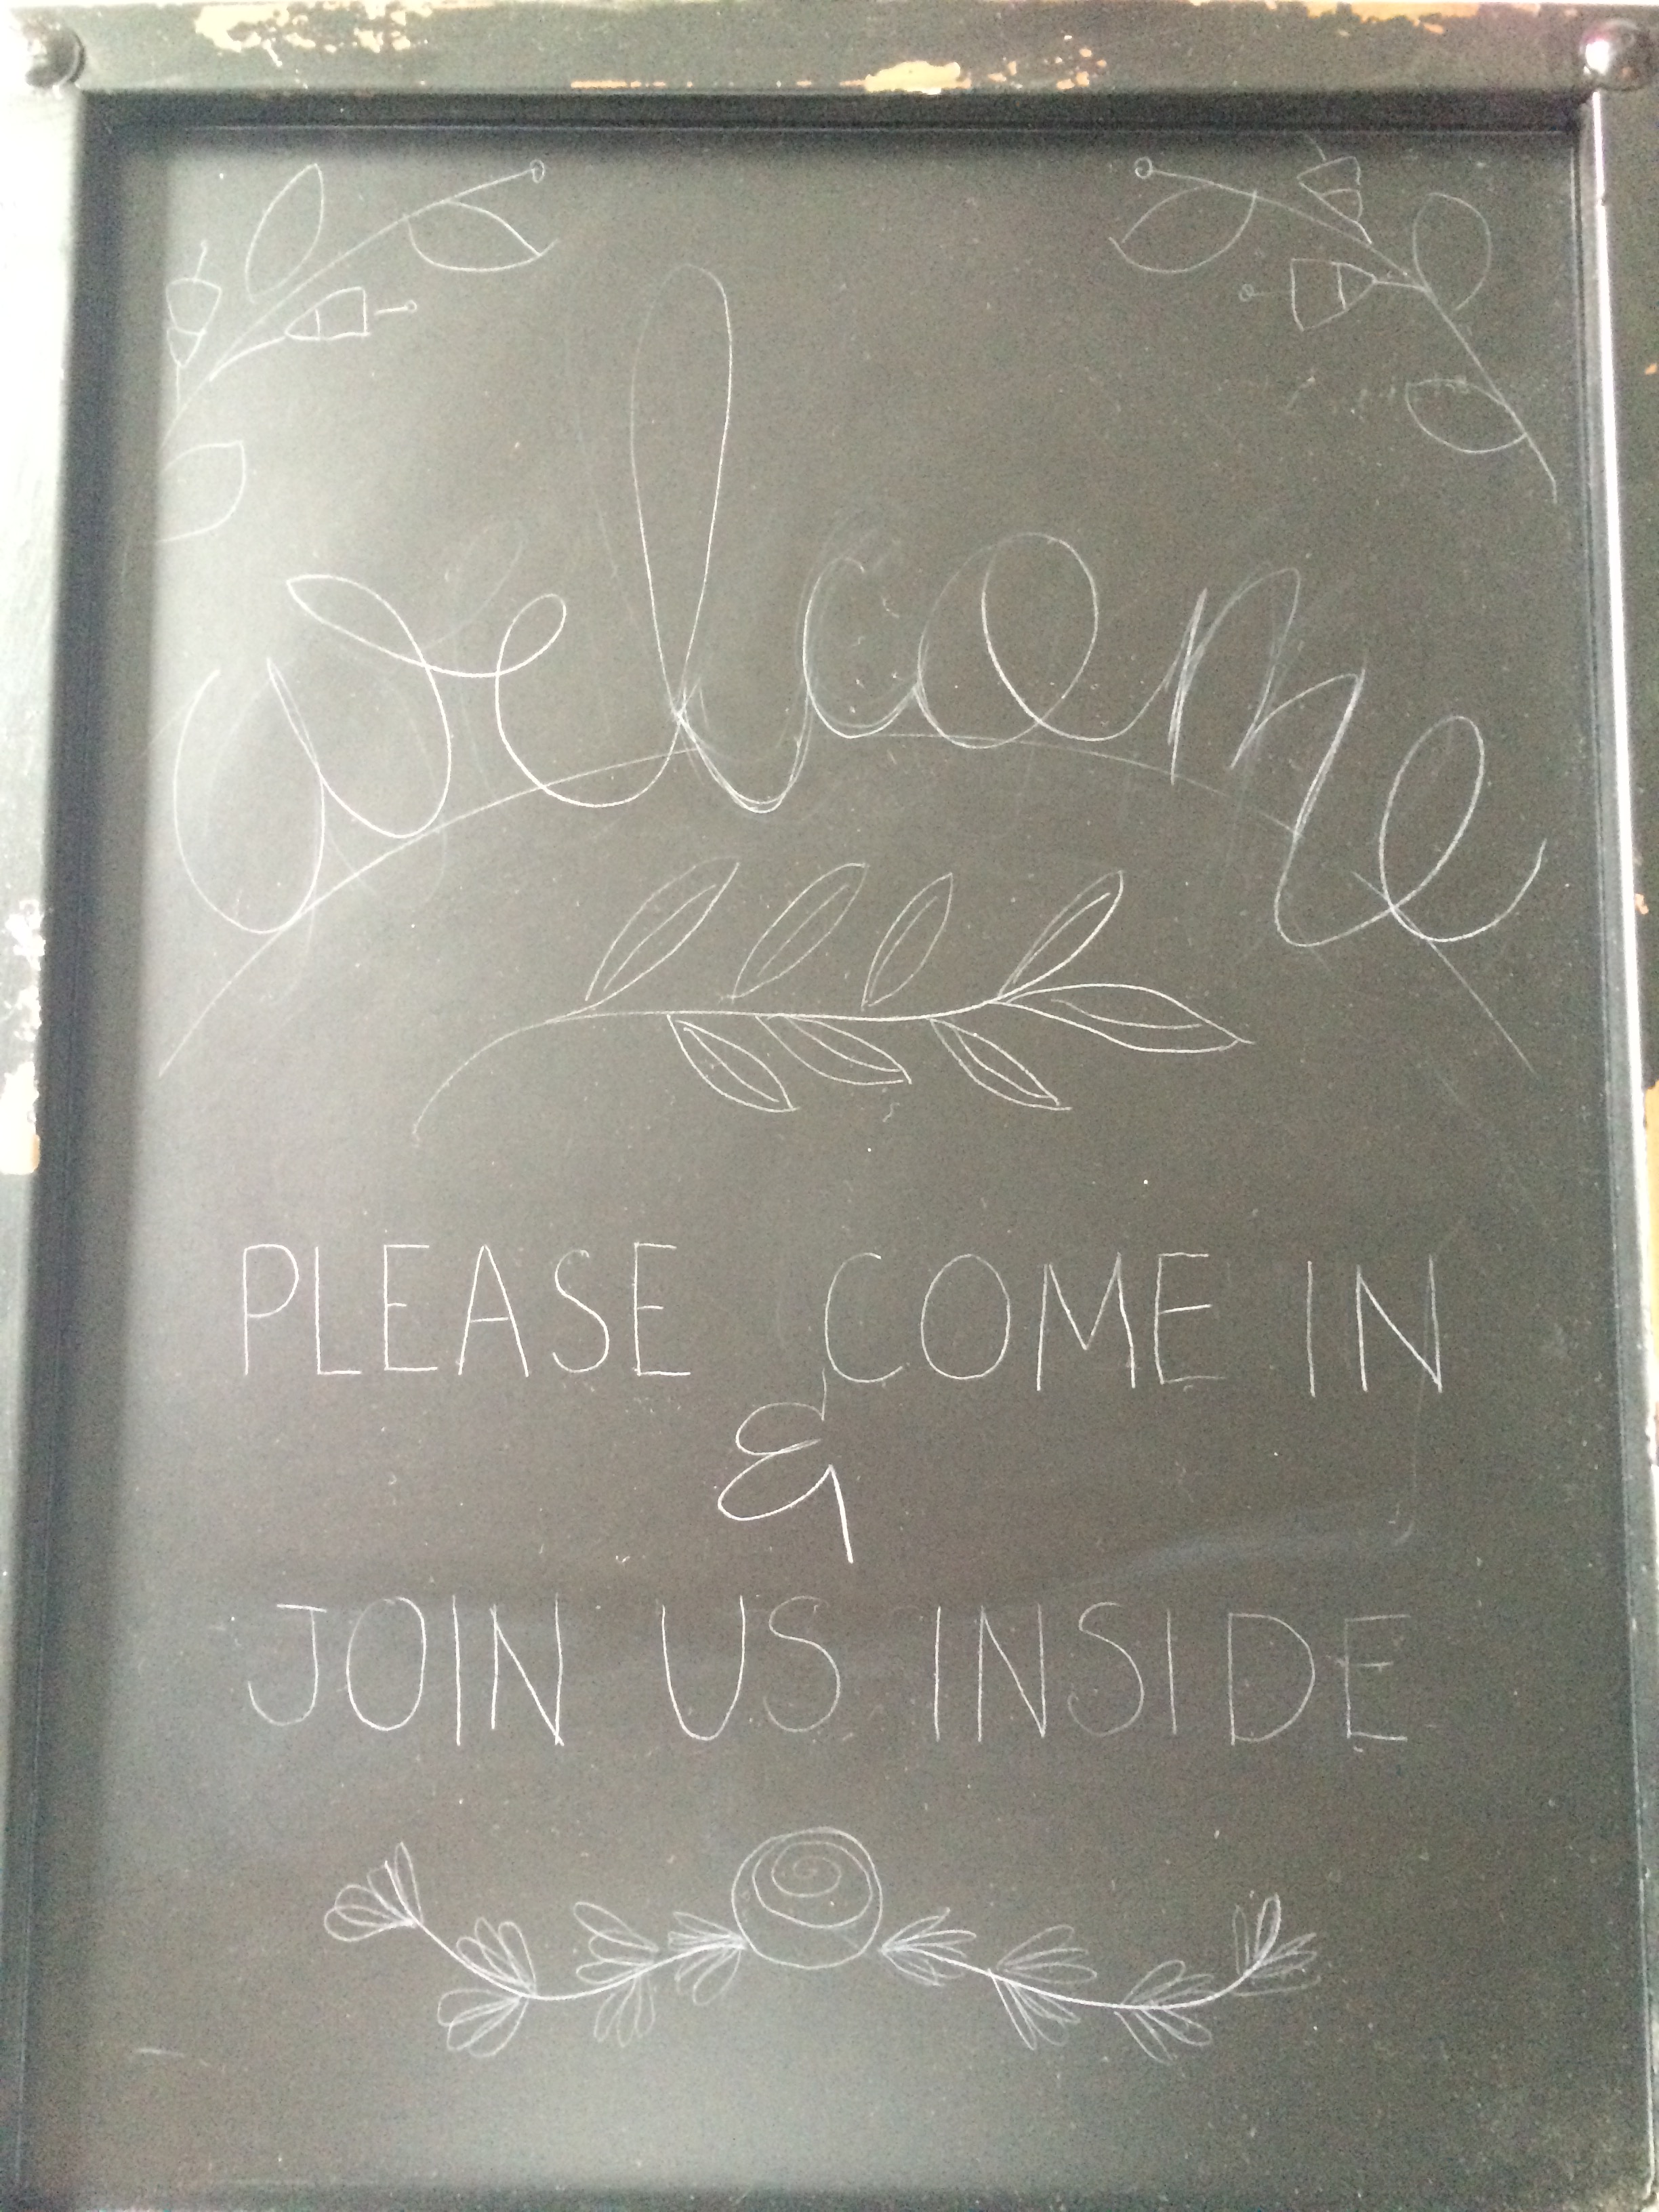 welcome
PLEASE COME IN
&
JOIN US INSIDE